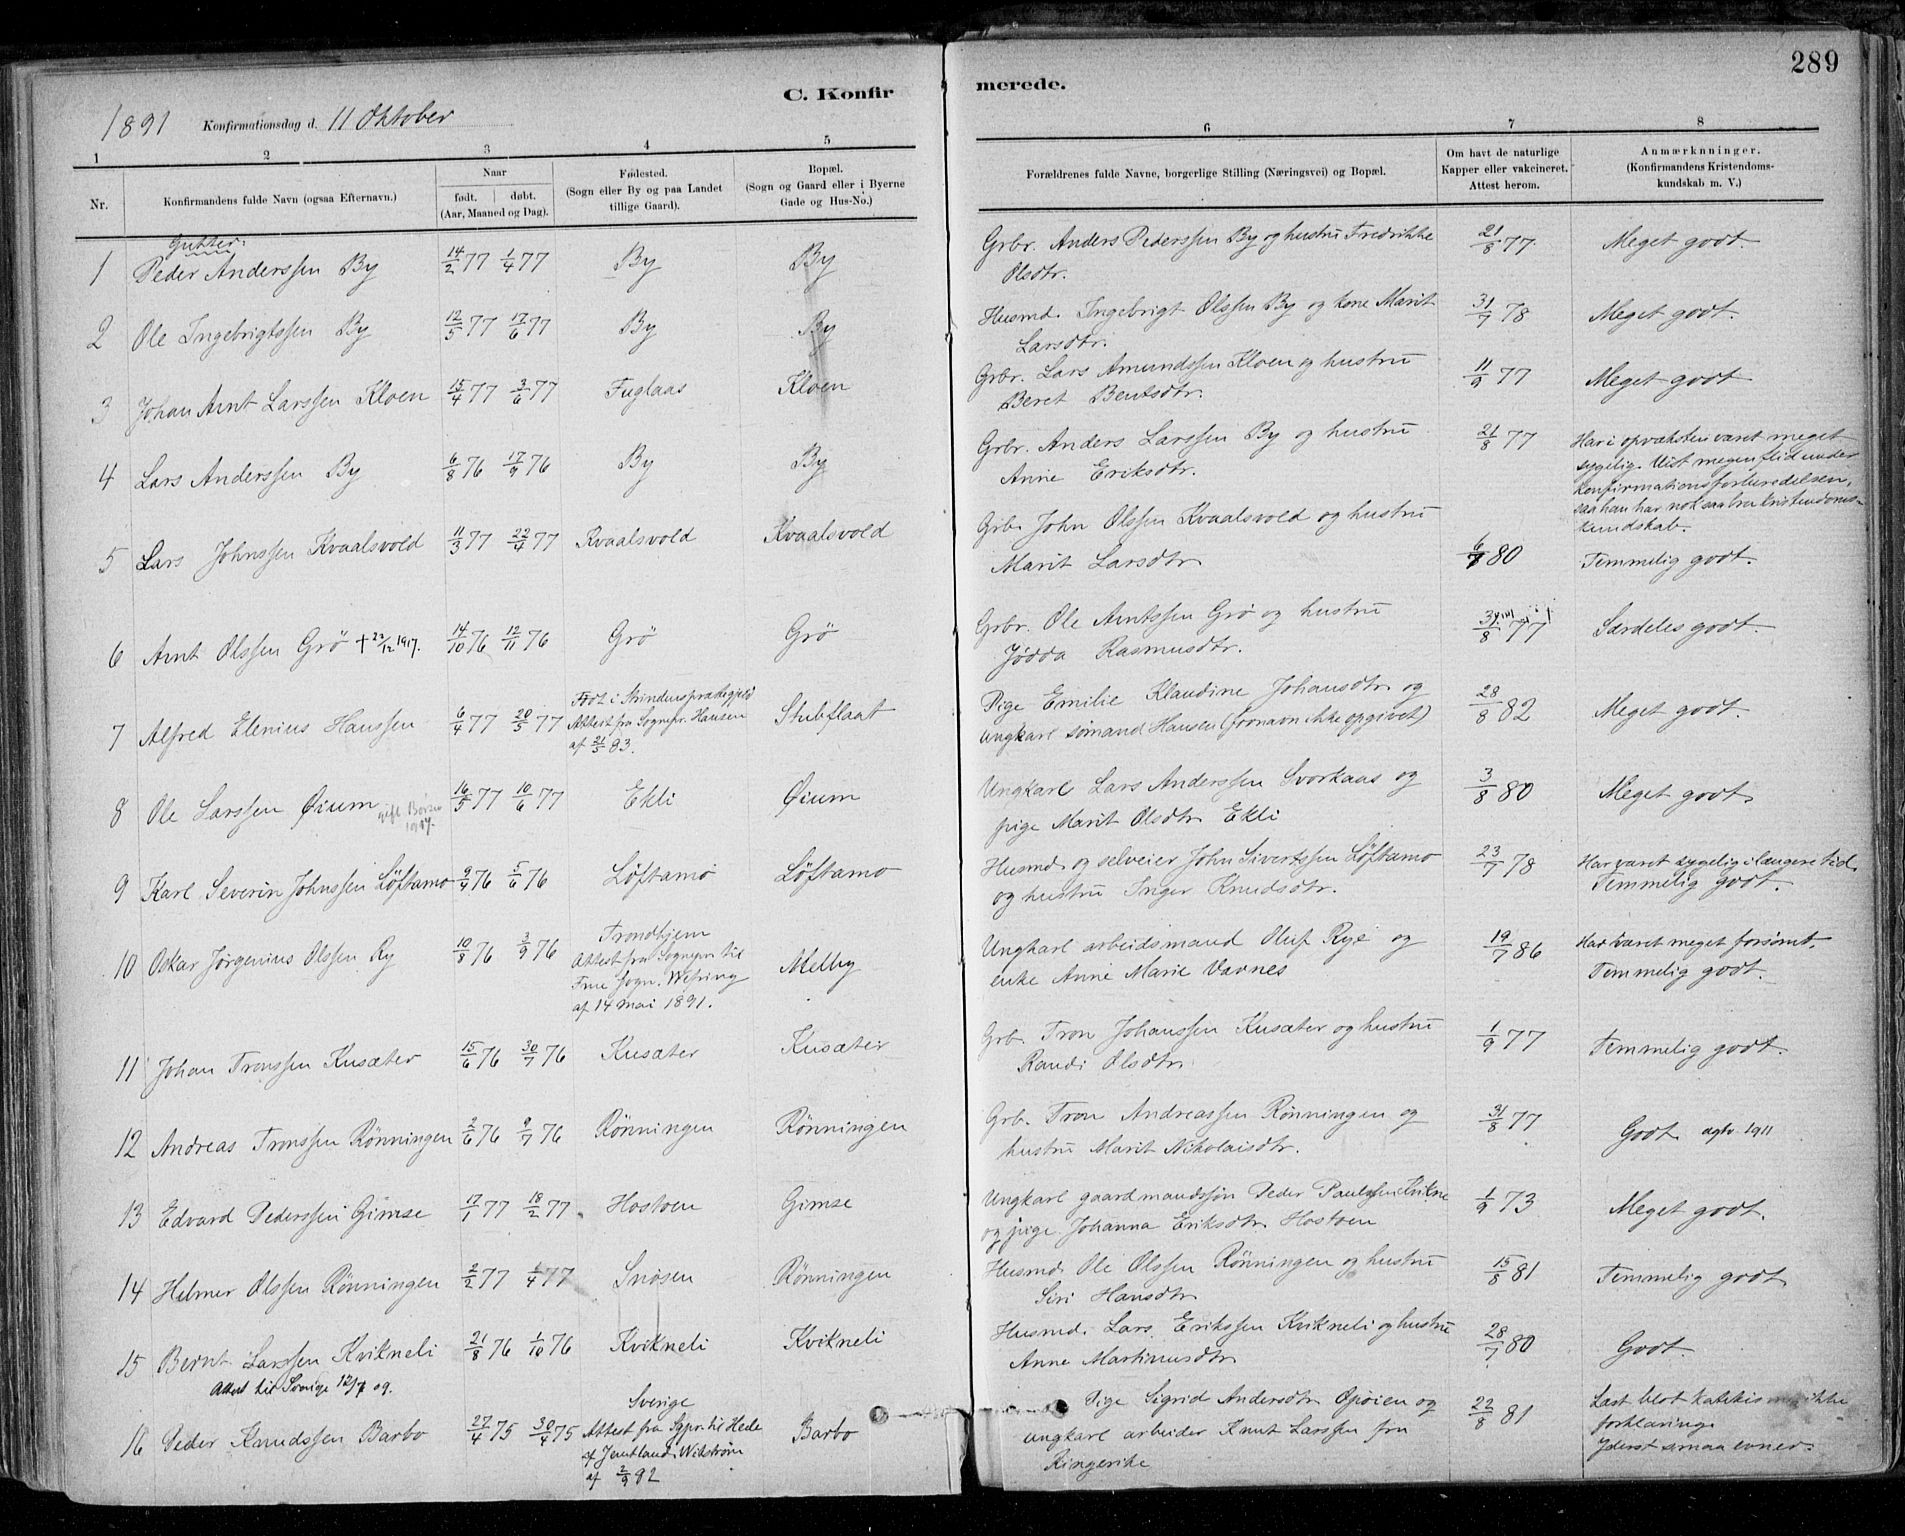 289
C. Konfirmerede.
1891 Konfirmationsdag d. 11 Oktober
1 2 3 4 5 6 7 8
Nr.
Konfirmandens fulde Navn (ogsaa Efternavn.)
Naar
født. døbt.
(Aar, Maaned og Dag).
Fødested.
(Sogn eller By og paa Landet
tillige Gaard).
Bopæl.
(Sogn og Gaard eller i Byerne
Gade og Hus-No.)
Forældrenes fulde Navne, borgerlige Stilling (Næringsvei) og Bopæl.
Om havt de naturlige
Kapper eller vakcineret.
Attest herom.
Anmærkninger.
(Konfirmandens Kristendoms-
kundskab m. V.)
Gutter.
1 Peder Anderssen By 14/2 77 1/4 77 By By Grbr. Anders Pederssen By og hustru Fredrikke 21/8 77. Meget godt.
Olsdtr.
2 Ole Ingebrigtssen By 12/5 77 17/6 77 By By Husmd. Ingebrigt Olssen By og kone Marit 31/7 78 Meget godt.
Larsdtr.
3 Johan Arnt Larssen Kloen 15/4 77 3/6 77 Fuglaas Kloen Grbr. Lars Amundssen Kloen og hustru 11/9 77 Meget godt
Beret Bentsdtr.
4 Lars Anderssen By 6/8 76 17/9 76 By By Grbr. Anders Larssen By og hustru 21/8 77 Har i opvæksten været meget
Anne Eriksdtr. sygelig. Vist megen flid under
konfirmationsforberedelsen,
saa han har nok saa bra kristendoms-
kundskab.
5 Lars Johnssen Kvaalsvold 11/3 77 22/4 77 Kvaalsvold Kvaalsvold Grb. John Olssen Kvaalsvold og hustru
Marit Larsdtr. 6/7 80 Temmelig godt.
6 Arnt Olssen Grö + 22/12 1917. 14/10 76 12/11 76 Grö Grö Grbr. Ole Arntssen Grö og hustru 77 Særdeles godt.
Jödda Rasmusdtr.
7 Alfred Elenius Hanssen 6/4 77 20/5 77 Født i Strindens præstegjeld Stubflaat Pige Emilie Klaudine Johansdtr. og 28/8 82 Meget godt.
Attest fra Sognepr. Hansen ungkarl sømand Hansen (fornavn ikke opgivet)
af 21/5 83.
8 Ole Larssen Øium gift Børsen 1917. 16/5 77 10/6 77 Ekli Øium Ungkarl Lars Anderssen Svorkaas og 3/8 80 Meget godt.
pige Marit Olsdtr. Ekli
9 Karl Severin Johnssen Löftamo 9/4 76 5/6 76 Löftamo Löftamo Husmd. og selveier John Sivertssen Löftamo 23/7 78 Har været sygelig i længere tid.
og hustru Inger Knudsdtr. Temmelig godt.
10 Oskar Jørgenius Olssen Ry 10/8 76 3/9 76 Trondhjem Melby Ungkarl arbeidsmand Oluf Rye og 19/7 86 Har været meget forsømt.
Attest fra Sognepr. til enke Anne Marie Varnes Temmelig godt.
Frue Sogn. Wefring
af 14 mai 1891.
11 Johan Tronssen Kusæter 15/6 76 30/7 76 Kusæter Kusæter Grb. Tron Johanssen Kusæter og hustru 1/9 77 Temmelig godt.
Randi Olsdtr.
12 Andreas Tronssen Rönningen 2/6 76 9/7 76 Rönningen Rönningen Grb. Tron Andreassen Rönningen og 31/8 77 Godt. 1911
hustru Marit Nikolaisdtr.
13 Edvard Pederssen Gimse 17/1 77 18/2 77. Hostoen Gimse Ungkarl gaardmandssön Peder Paulssen Kvikne 1/9 73 Meget godt.
og pige Johanna Eriksdtr. Hostoen
14 Helmer Olssen Rönningen 2/2 77 2/4 77 Snösen Rönningen Husmd. Ole Olssen Rönningen og hustru 15/8 81 Temmelig godt
Siri Hansdtr.
15 Bernt Larssen Kvikneli 21/8 76 1/10 76 Kvikneli Kvikneli Husmd. Lars Erikssen Kvikneli og hustru 28/7 80 Godt.
Attest til Sverige 12/7 09. Anne Martinusdtr.
16 Peder Knudssen Barbo 27/4 75 30/4 75 Sverige Barbo Pige Sigrid Andersdtr. Opöien og 22/8 81 Læst blot katekismen, ikke
Attest fra Sgpr. til Hede ungkarl arbeider Knut Larssen fra forklaring.
af Jemtland. Wikström Ringerike Yderst smaa evner.
af 2/9 82